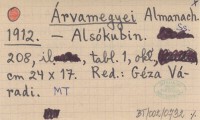 Árvamegyei Almanach.
1912. — Alsókubin.
208, il , tabl. 1, okl,
cm 24 x 17. Red.: Géza Vá-
radi. MT